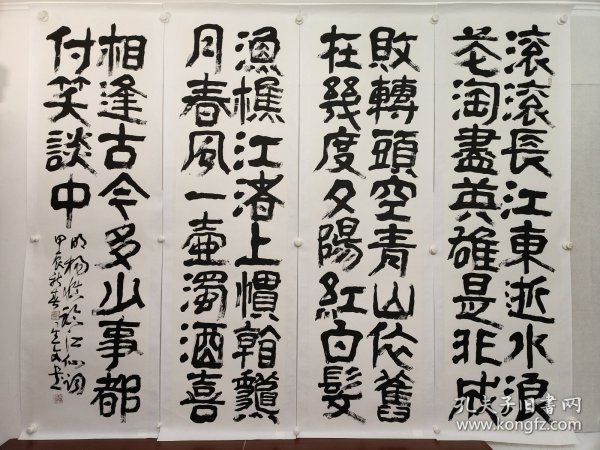 滚滚長江東逝水浪
花淘盡英雄是非成
敗轉頭空青山依舊
在幾度夕陽紅白髮
漁樵江渚上慣看龝
月春風一壺濁酒喜
相逢古今多少事都
付笑談中
明楊慎臨江仙詞
甲辰新春
孔夫子旧书网
www.kongfz.com